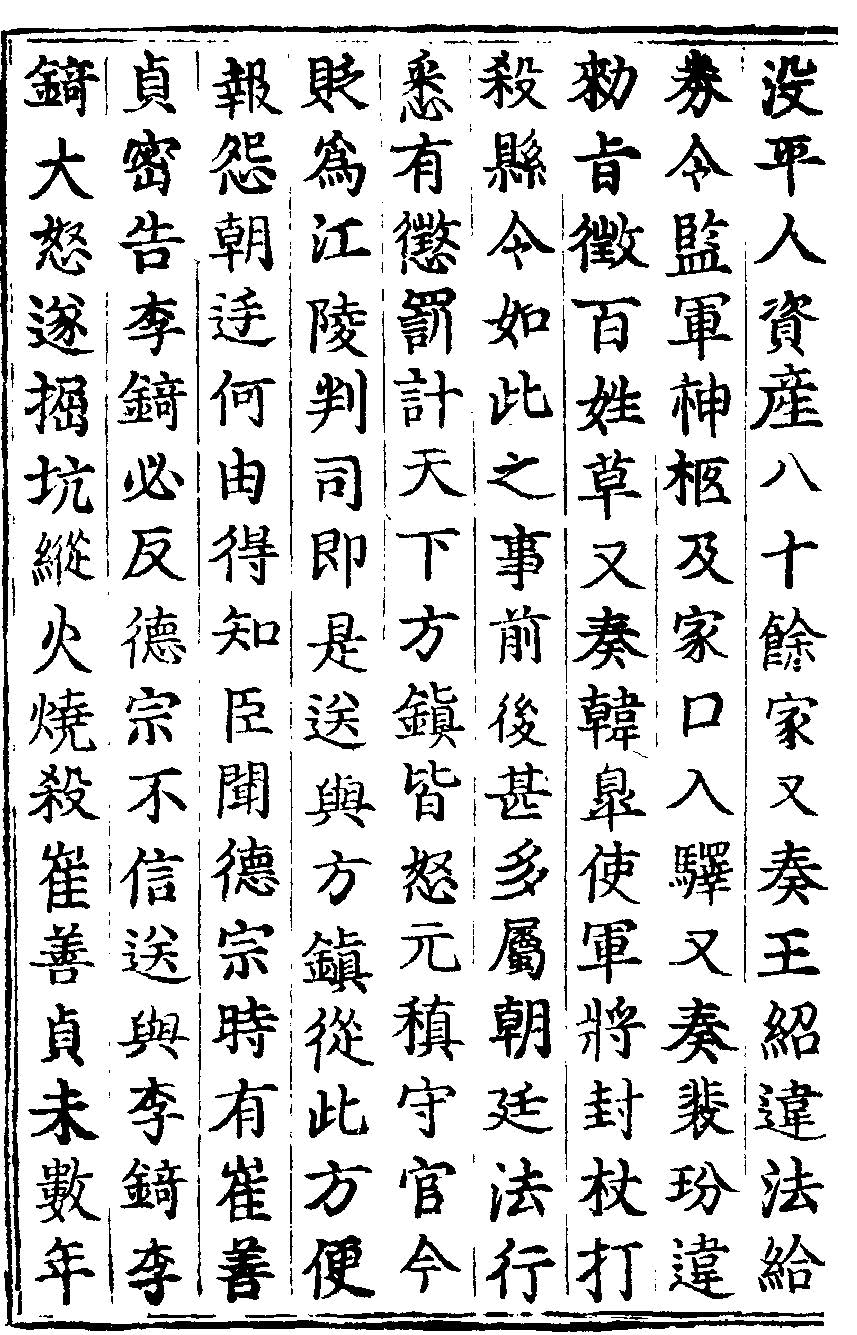 没平人資産八十餘家又奏王紹違法給
券令監軍神柩及家口入驛又奏裴玢違
勑旨徵百姓草又奏韓臯使軍將封杖打
殺縣令如此之事前後甚多屬朝廷法行
悉有懲罰計天下方鎮皆怒元稹守官今
貶爲江陵判司即是送與方鎮從此方便
報怨朝廷何由得知臣聞德宗時有崔善
貞密告李錡必反德宗不信送與李錡李
錡大怒遂掘坑縱火燒殺崔善貞未數年